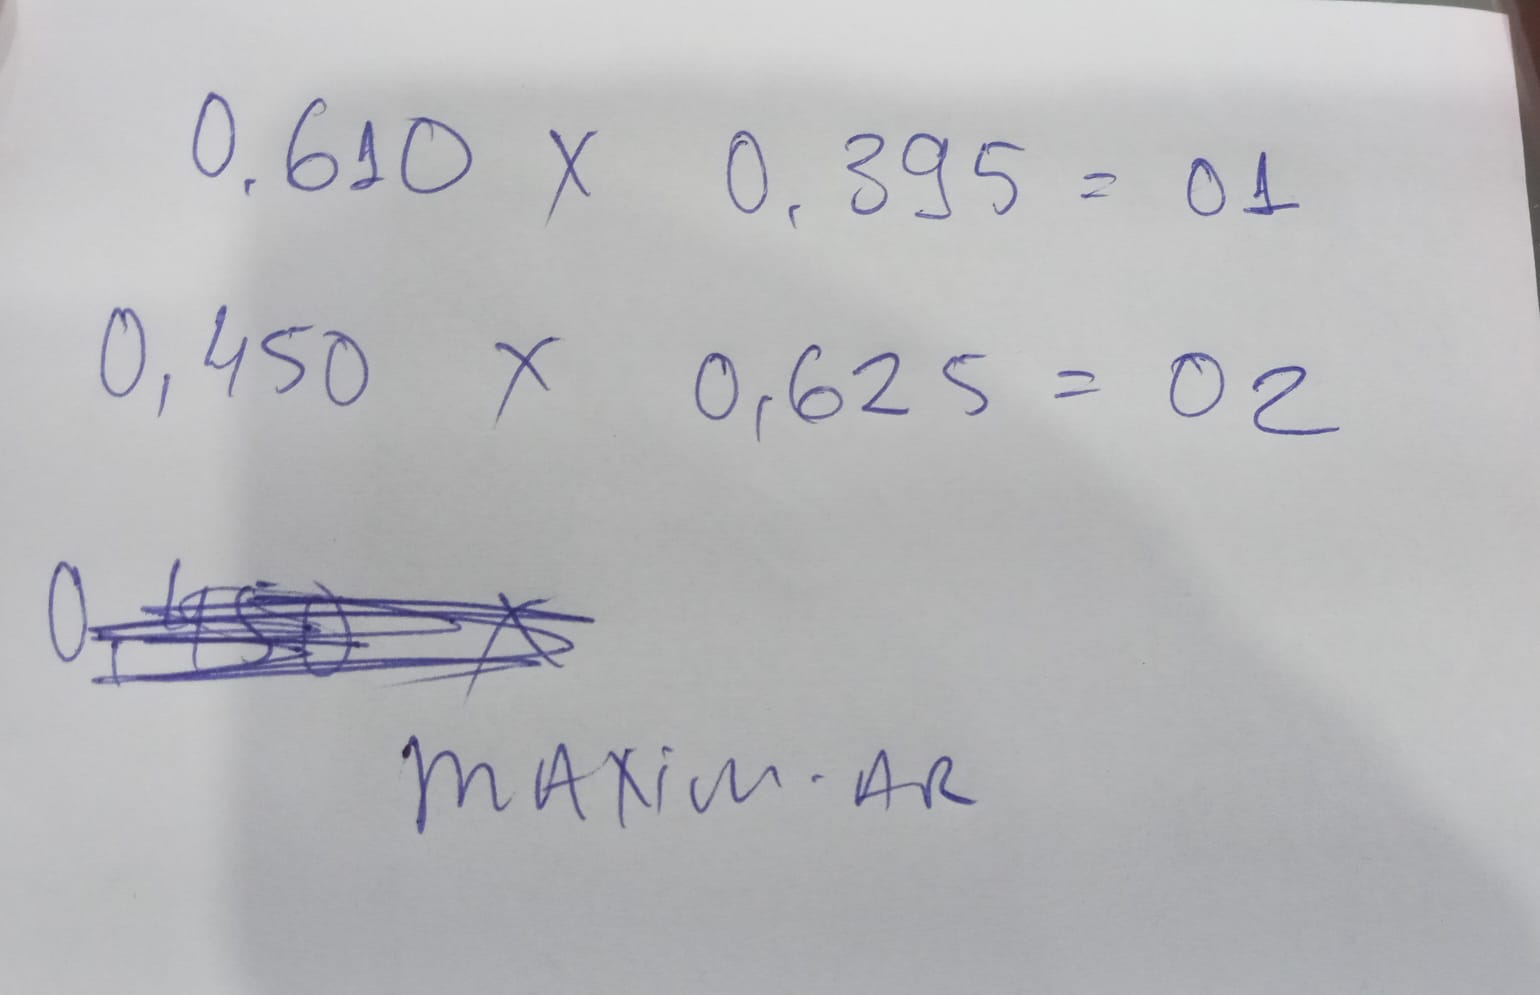 0.610 x 0,395 = 01
0,450 x 0,625 = 02
MAXIM-AR